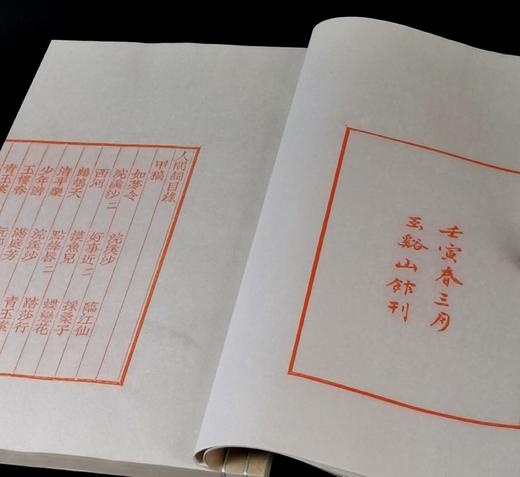 壬寅春三月
玉谿山館刊
人間詞目錄
甲稿
如夢令 浣溪沙 臨江仙
浣溪沙二 好事近二 採桑子
西河 摸魚兒 蝶戀花
鷓鴣天 點絳唇二 踏莎行
清平樂 浣溪沙 青玉案
少年游 滿庭芳
玉樓春
青玉案